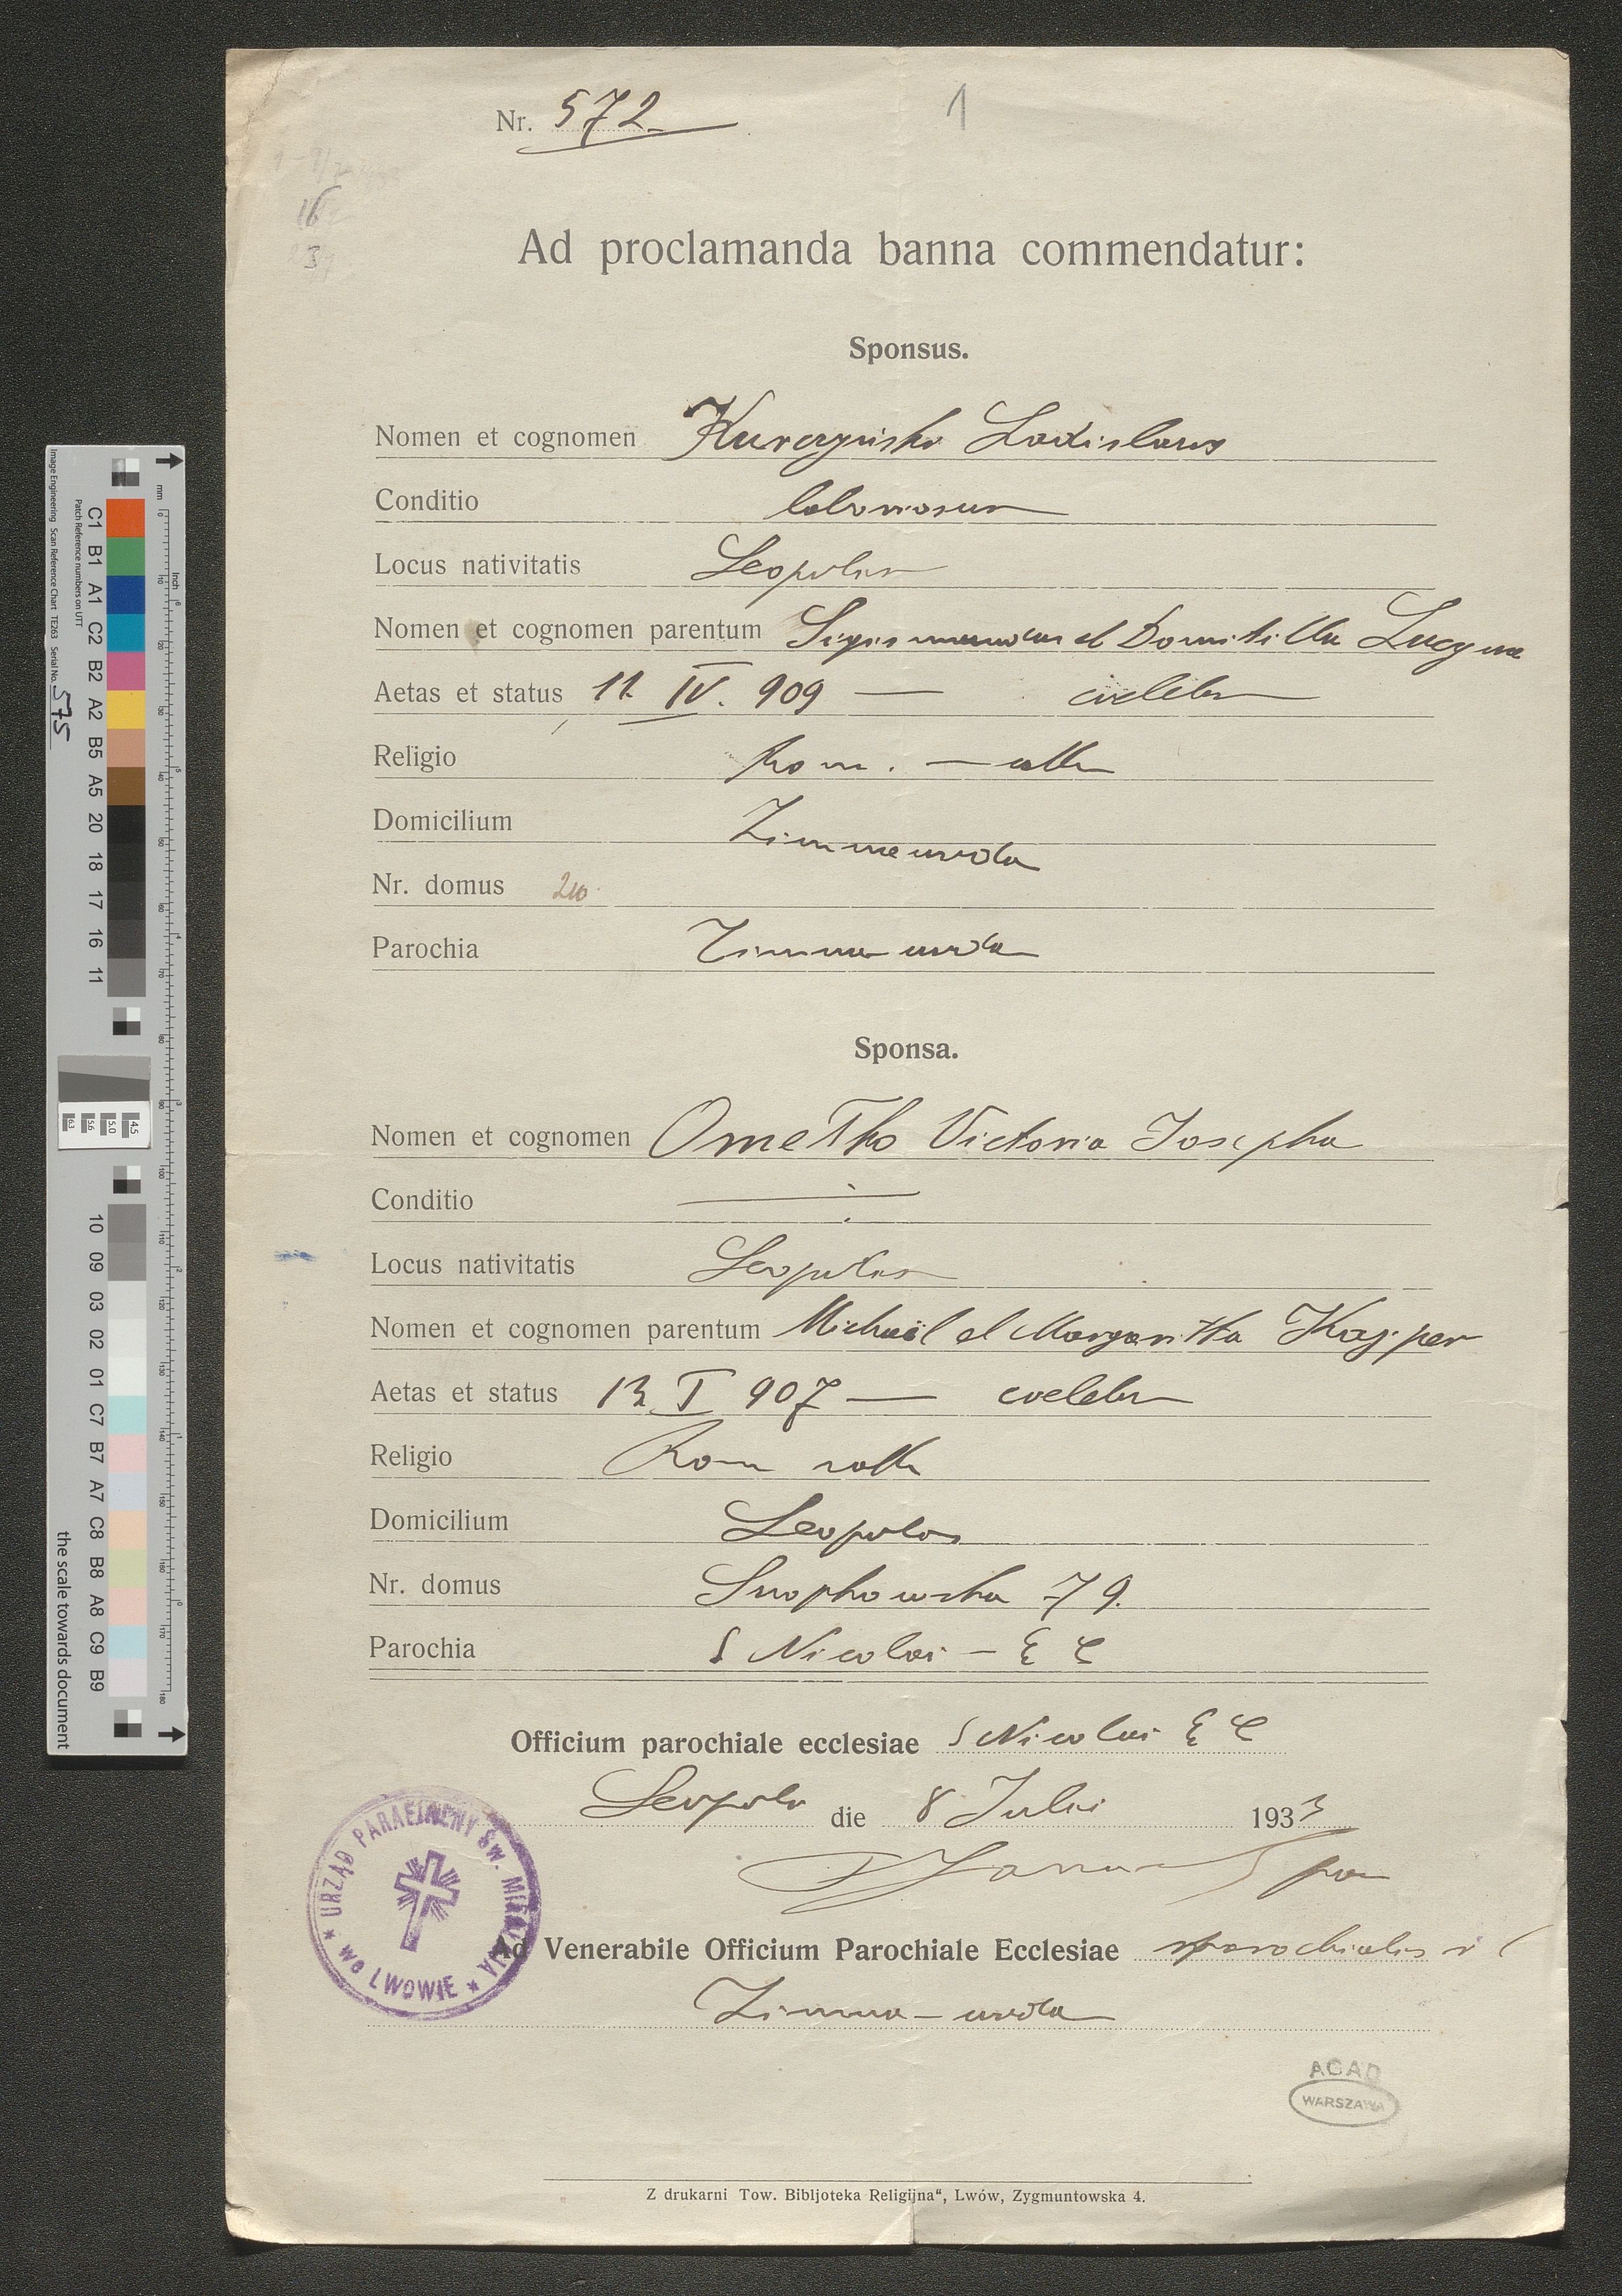 Nr. 572
1
16
Ad proclamanda banna commendatur:
Sponsus.
Nomen et cognomen Ladislaus
Conditio
Locus nativitatis Leopolis
Nomen et cognomen parentum Sigismundus et Domitilla
Aetas et status 11. IV. 909 — coelebs
Religio Rom. — cath
Domicilium Zimna woda
Nr. domus 210
Parochia Zimna woda
Sponsa.
Nomen et cognomen Ometko Victoria Josepha
Conditio
Locus nativitatis Leopolis
Nomen et cognomen parentum Michaël et Margaritha Kasper
Aetas et status 13 I 907 — coelebs
Religio Rom cath
Domicilium Leopolis
Nr. domus Snopkowska 79.
Parochia S Nicolai —
Officium parochiale ecclesiae S Nicolai
Leopoli die 8 Julii 1933
Ad Venerabile Officium Parochiale Ecclesiae parochialis
Zimna — woda
URZĄD PARAFJALNY ŚW. MIKOŁAJA
WE LWOWIE
AGAD
WARSZAWA
Z drukarni Tow. Bibljoteka Religijna“, Lwów, Zygmuntowska 4.
Image Engineering Scan Reference Chart TE263 Serial No. 575
Patch Reference numbers on UTT
C1 B1 A1 C2 B2 A2 B5 A5 20 18 17 16 11
10 09 03 02 01 C7 B7 A7 C8 B8 A8 C9 B9
the scale towards document